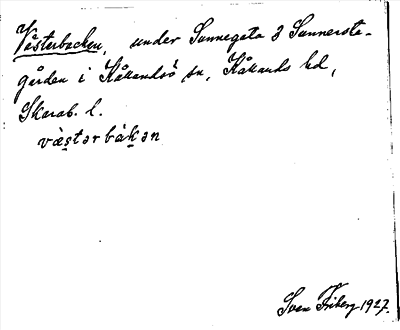 Västerbacken, under Sunnegata 3 Sunnersta-
gården i Kållandsö sn, Kållands hd,
Skarab. l.
västərbàkən
Sven Friberg 1927.